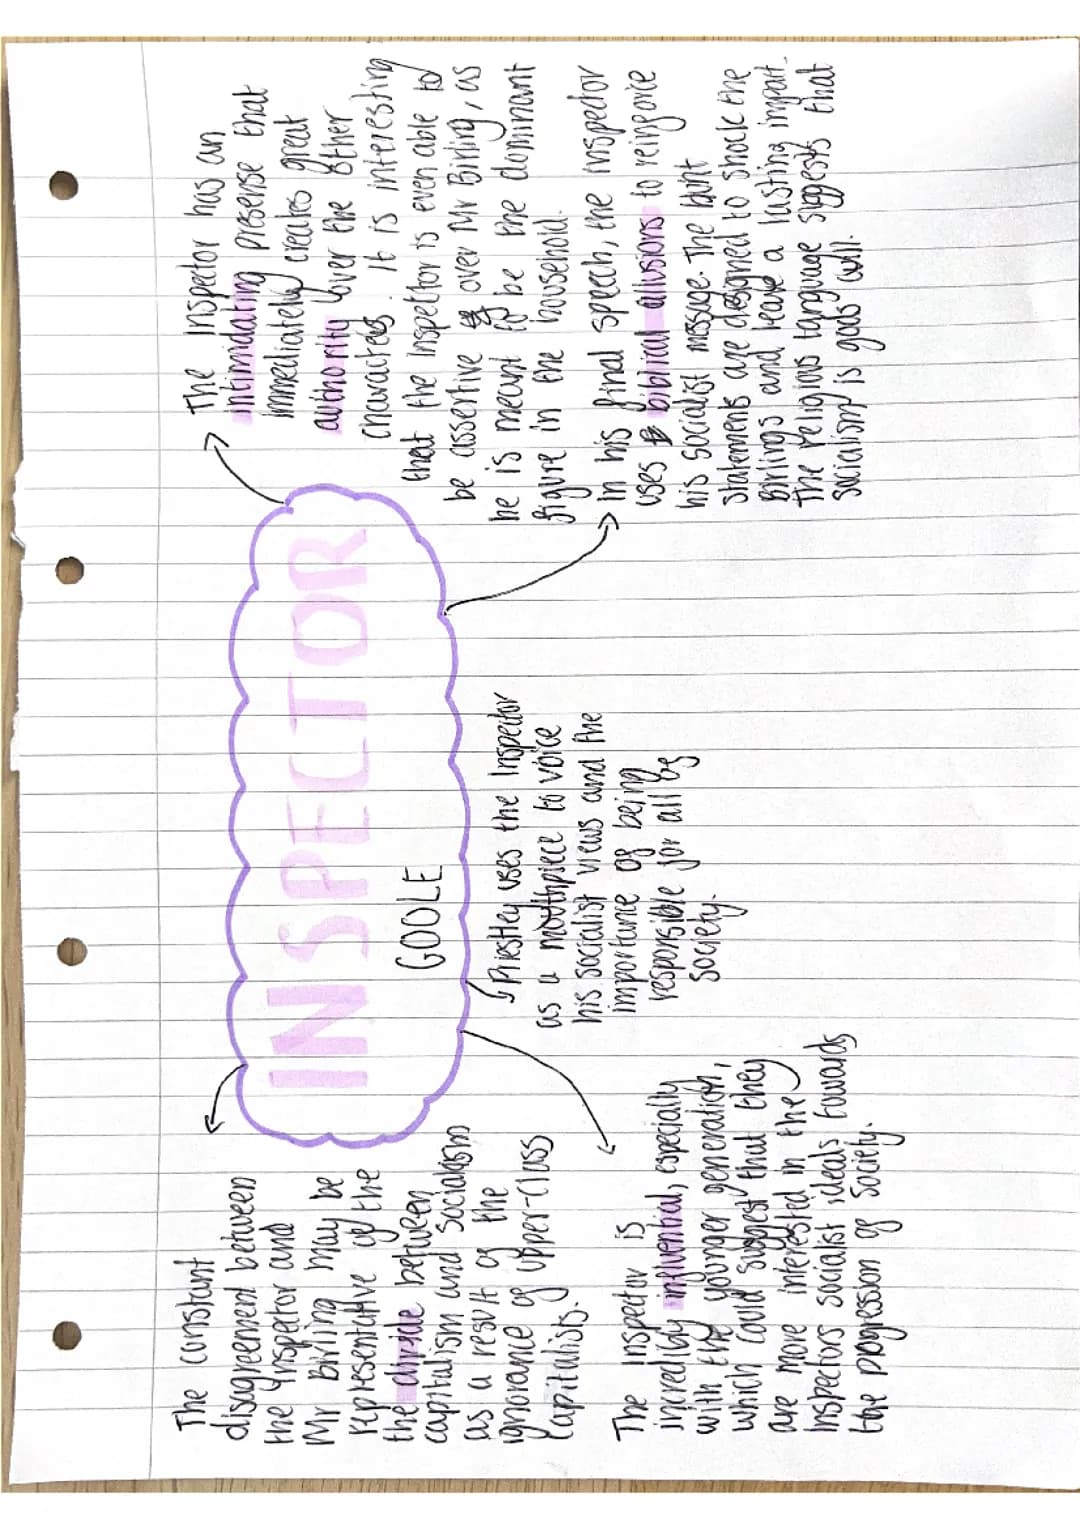 INSPECTOR
GOOLE
The constant
disagreement between
the Inspector and
Mr Birling may be
representative of the
the divide between
capitalism and socialism
as a result of the
ignorance of upper-class
capitalists.
The Inspector is
incredibly influential, especially
with the younger generation,
which could suggest that they
are more interested in the
Inspectors socialist ideals towards
the progression of society.
Priestley uses the Inspector
as a mouthpiece to voice
his socialist views and the
importance of being
responsible for all of
society.
The Inspector has an
intimidating presense that
immediately creates great
authority over the other
characters. It is interesting
that the Inspector is even able to
be assertive over Mr Birling, as
he is meant to be the dominant
figure in the household.
In his final speech, the inspector
uses biblical allusions to reinforce
his socialist message. The blunt
statements are designed to shock the
Birlings and leave a lasting impact.
The religious language suggests that
socialism is gods will.